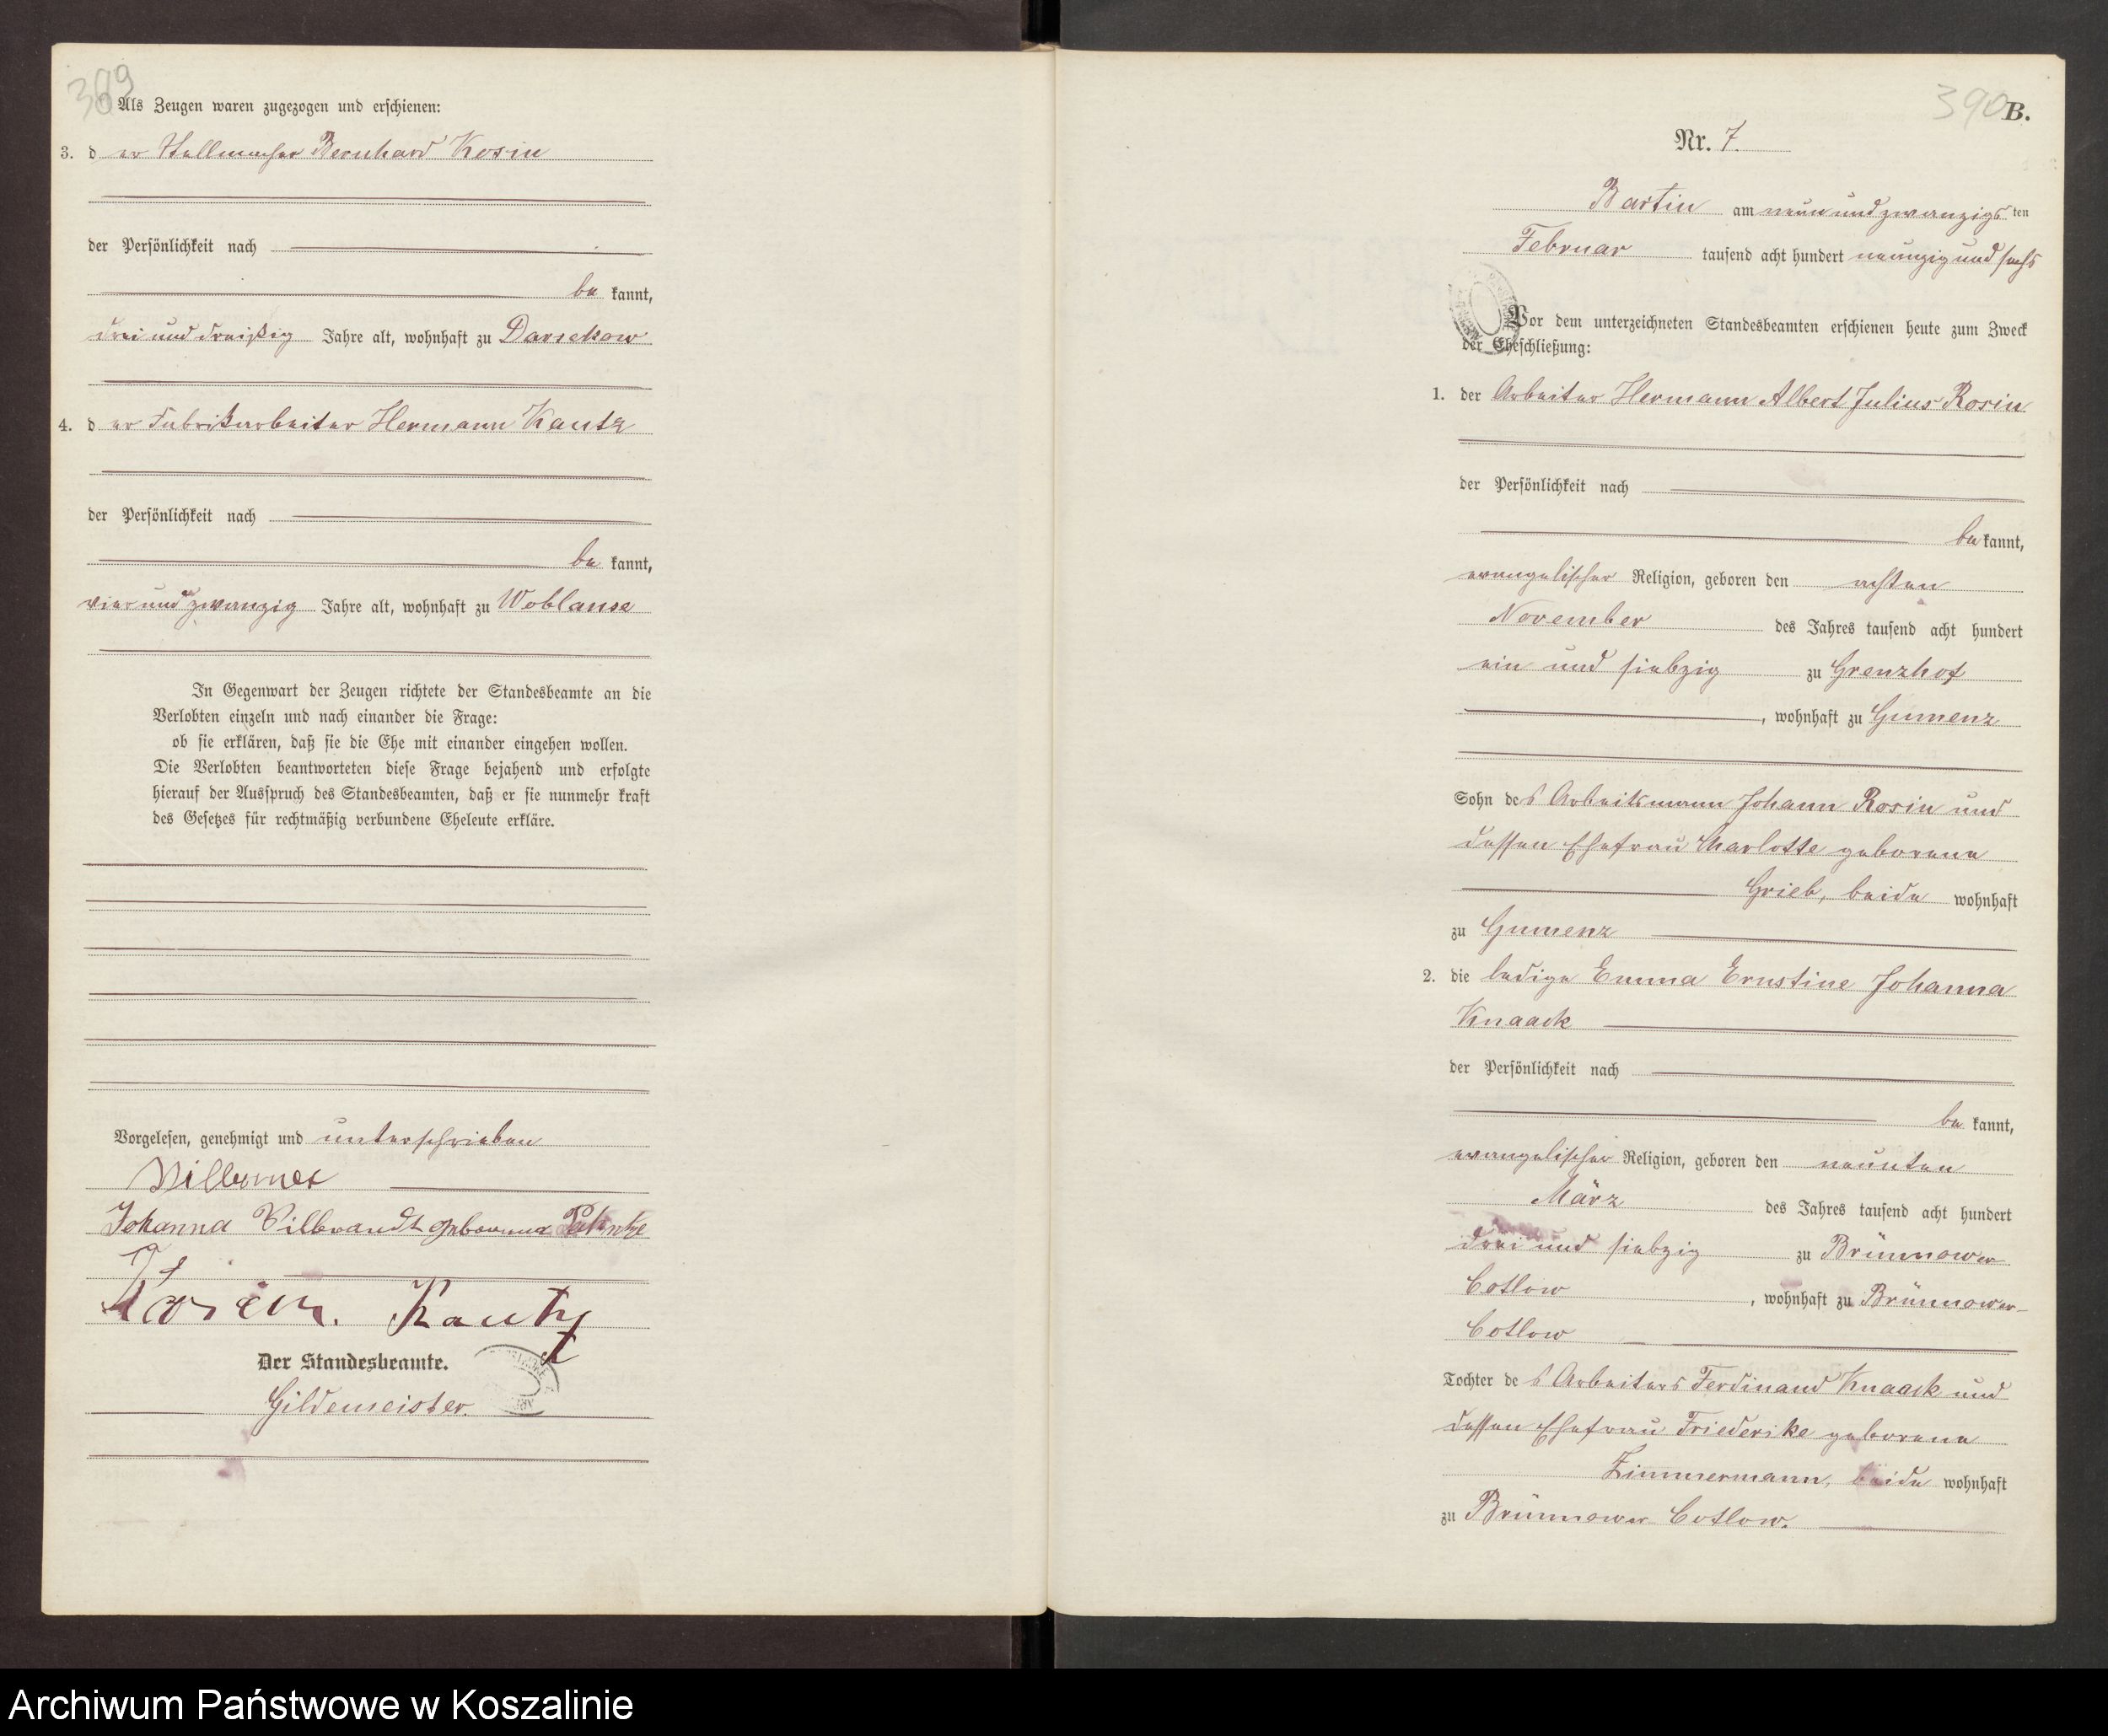 389
Als Zeugen waren zugezogen und erschienen:
3. d er Stellmacher Bernhard Kosin
der Persönlichkeit nach
be kannt,
drei und dreißig Jahre alt, wohnhaft zu Darsekow
4. d er Fabrikarbeiter Hermann Kautz
der Persönlichkeit nach
be kannt,
vier und zwanzig Jahre alt, wohnhaft zu Woblanse
In Gegenwart der Zeugen richtete der Standesbeamte an die
Verlobten einzeln und nach einander die Frage:
ob sie erklären, daß sie die Ehe mit einander eingehen wollen.
Die Verlobten beantworteten diese Frage bejahend und erfolgte
hierauf der Ausspruch des Standesbeamten, daß er sie nunmehr kraft
des Gesetzes für rechtmäßig verbundene Eheleute erkläre.
Vorgelesen, genehmigt und unterschrieben
Johanna Vilbrandt geborene
Kosin. Kautz
Der Standesbeamte.
Gildemeister.
390
B.
Nr. 7.
Bartin am neun und zwanzigs ten
Februar tausend acht hundert neunzig und sechs
Vor dem unterzeichneten Standesbeamten erschienen heute zum Zweck
der Eheschließung:
1. der Arbeiter Hermann Albert Julius Rosin
der Persönlichkeit nach
be kannt,
evangelischer Religion, geboren den achten
November des Jahres tausend acht hundert
ein und siebzig zu Grenzhof
, wohnhaft zu Gumenz
Sohn des Arbeitsmann Johann Rosin und
dessen Ehefrau Charlotte geborene
Grieb, beide wohnhaft
zu Gumenz
2. die ledige Emma Ernstine Johanna
Knaack
der Persönlichkeit nach
be kannt,
evangelischer Religion, geboren den neunten
März des Jahres tausend acht hundert
drei und siebzig zu Brünnower
Cotlow, wohnhaft zu Brünnower-
Cotlow
Tochter des Arbeiters Ferdinand Knaack und
dessen Ehefrau Friederike geborene
Zimmermann, beide wohnhaft
zu Brünnower Cotlow.
Archiwum Państwowe w Koszalinie